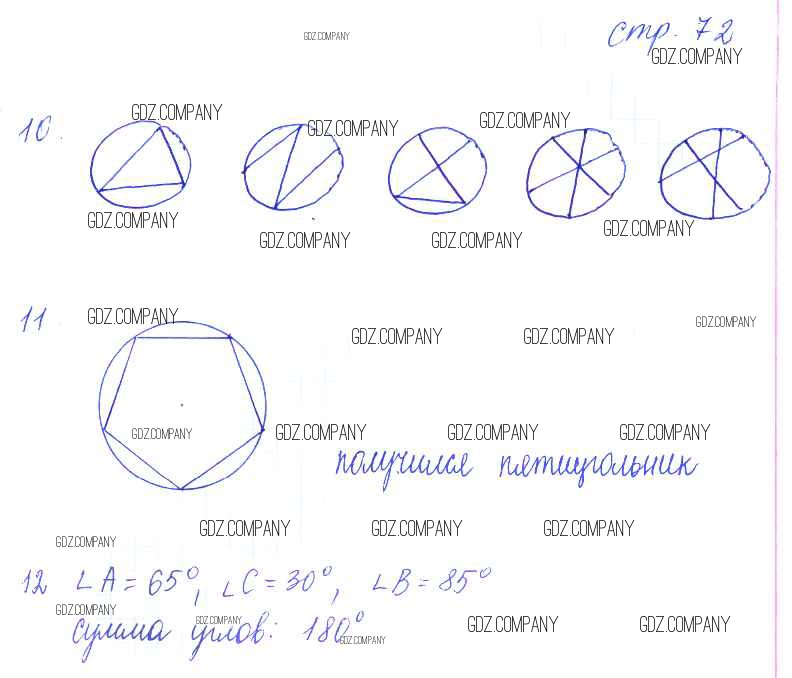 GDZ.COMPANY
стр. 72
GDZ.COMPANY
GDZ.COMPANY
GDZ.COMPANY
GDZ.COMPANY
10.
GDZ.COMPANY
GDZ.COMPANY
GDZ.COMPANY
GDZ.COMPANY
11.
GDZ.COMPANY
GDZ.COMPANY
GDZ.COMPANY
GDZ.COMPANY
GDZ.COMPANY
GDZ.COMPANY
GDZ.COMPANY
GDZ.COMPANY
получился пятиугольник
GDZ.COMPANY
GDZ.COMPANY
GDZ.COMPANY
GDZ.COMPANY
12 ∠A = 65°, ∠C = 30°, ∠B = 85°
GDZ.COMPANY
GDZ.COMPANY
GDZ.COMPANY
GDZ.COMPANY
сумма углов: 180°
GDZ.COMPANY